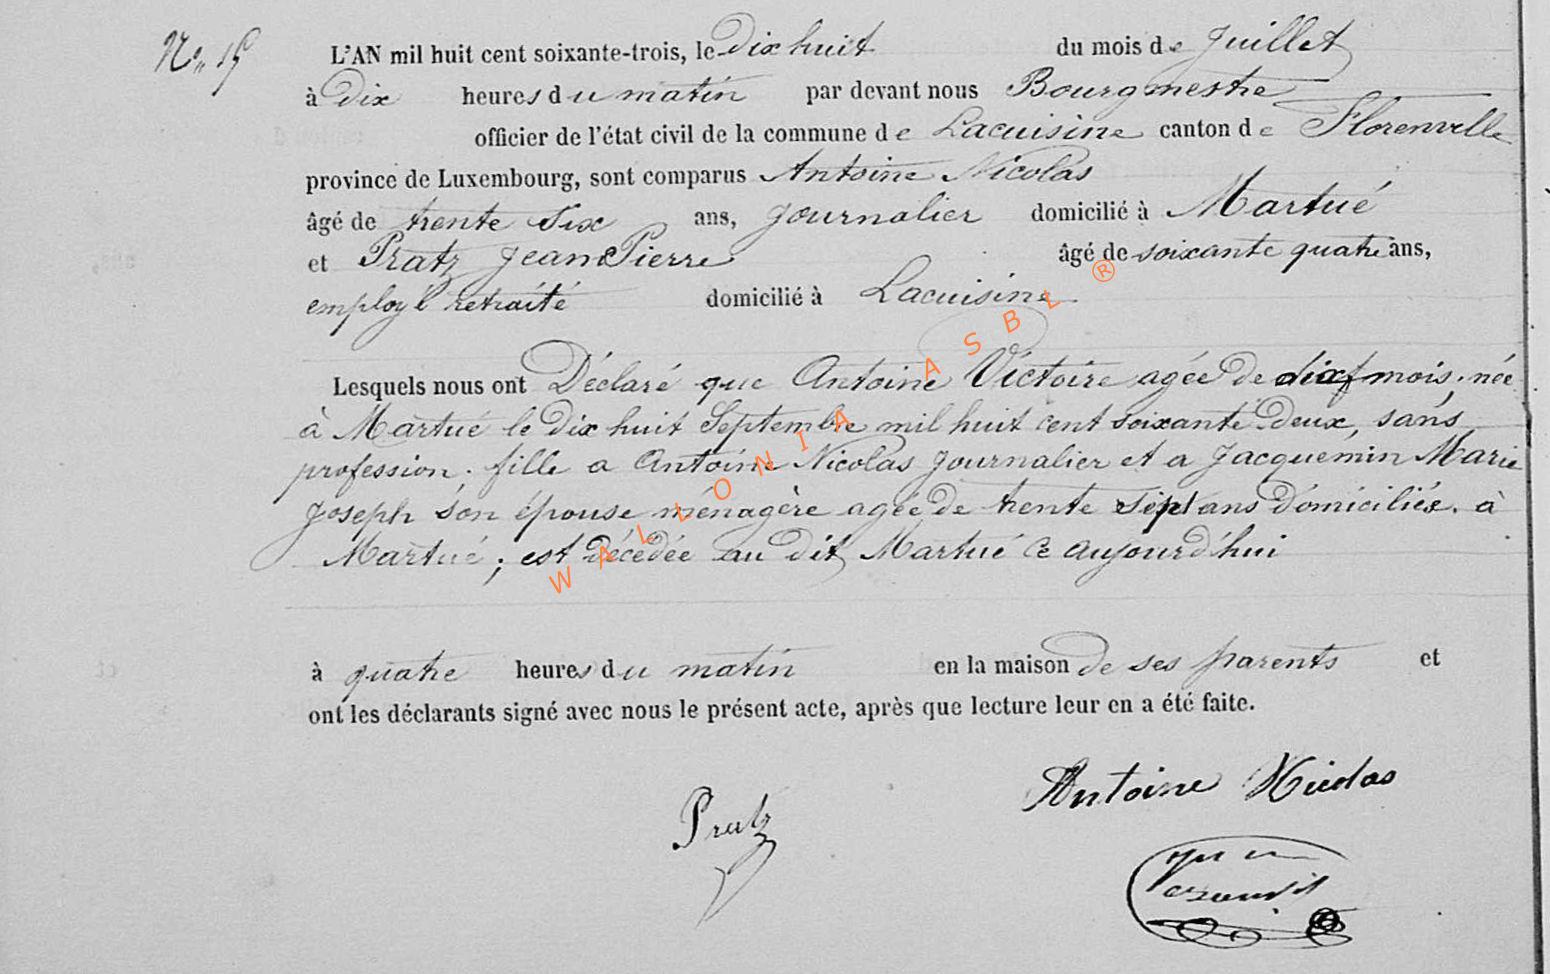 N° 15
L'AN mil huit cent soixante-trois, le Dix huit du mois de Juillet
à Dix heures du matin par devant nous Bourgmestre
officier de l'état civil de la commune de Lacuisine canton de Florenville
province de Luxembourg, sont comparus Antoine Nicolas
âgé de trente six ans, journalier domicilié à Martué
et Pratz Jean Pierre âgé de soixante quatre ans,
employé retraité domicilié à Lacuisine
Lesquels nous ont Déclaré que Antoine Victoire agée de dix mois, née
à Martué le Dix huit Septembre mil huit cent soixante deux, sans
profession, fille a Antoine Nicolas journalier et a Jacquemin Marie
Joseph son épouse ménagère agée de trente sept ans Domiciliés à
Martué; est décédée au dit Martué ce aujourd'hui
à quatre heures du matin en la maison de ses parents et
ont les déclarants signé avec nous le présent acte, après que lecture leur en a été faite.
Antoine Nicolas
Pratz
WALLONIA ASBL ®